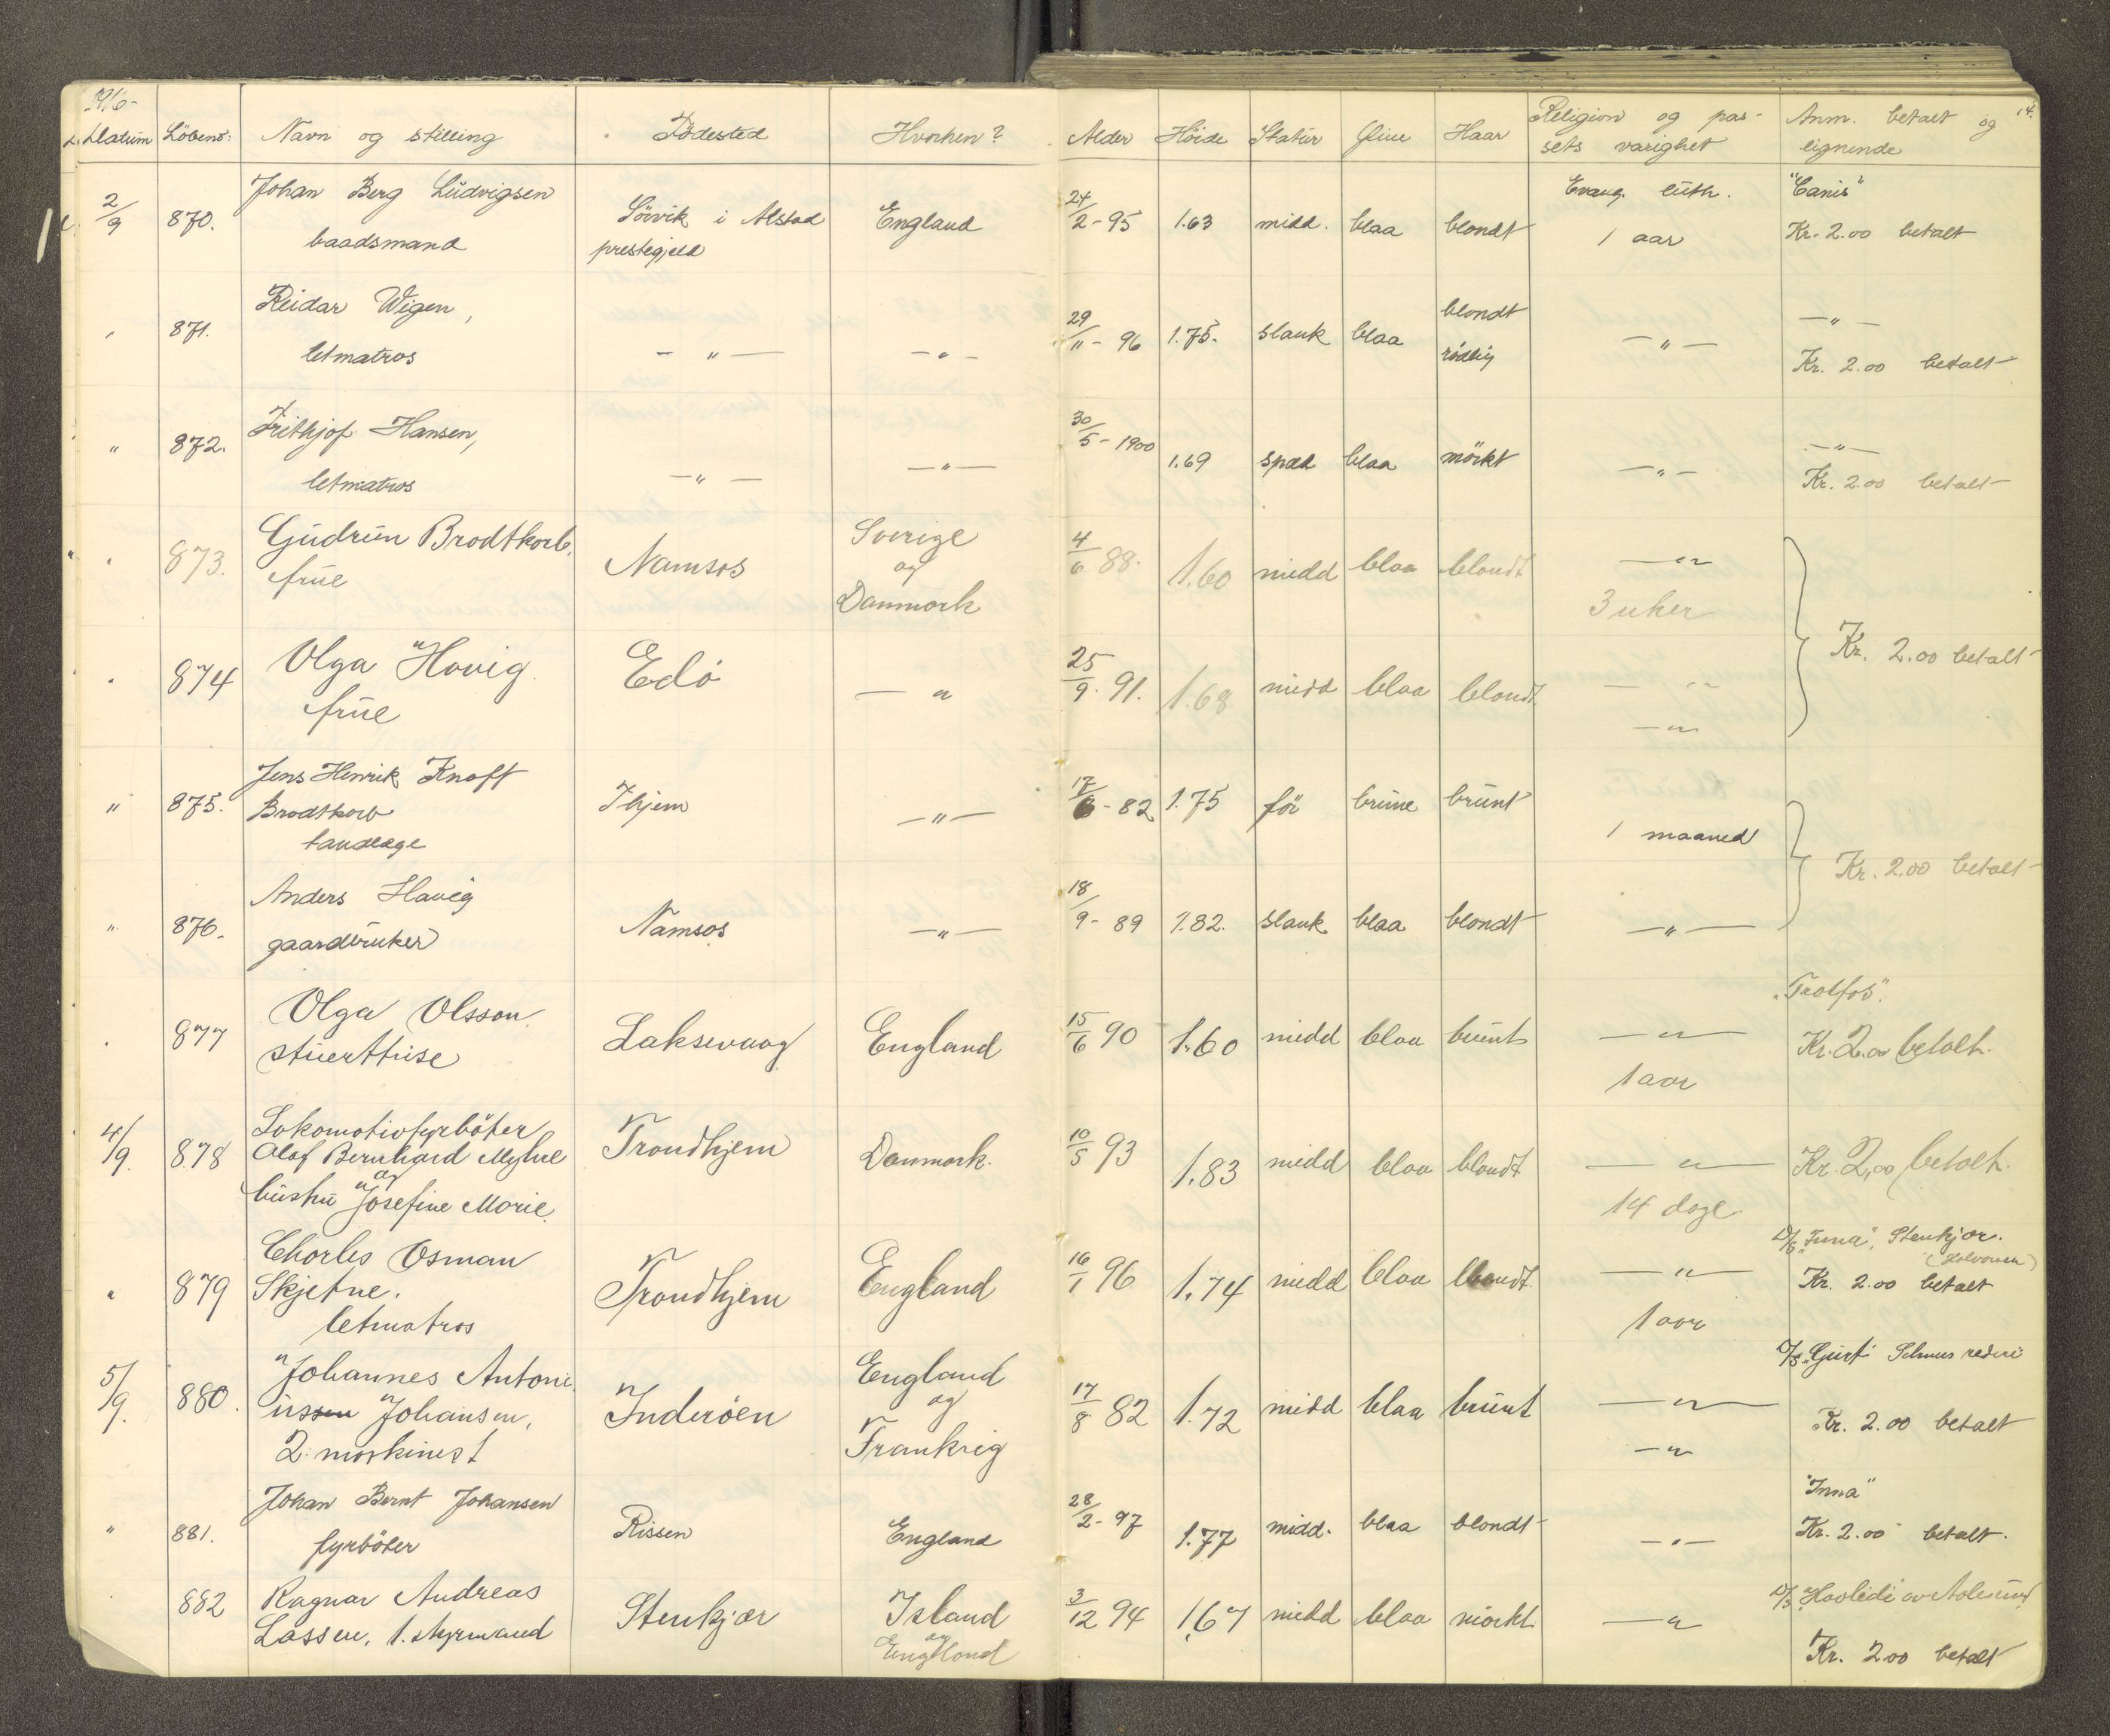 1916-
Datum Löbenr: Navn og stilling Födested Hvorhen? Alder Höide Statur Öine Haar Religion og pas- Anm. betalt og 14.
sets varighet lignende
2/9 870. Johan Berg Ludvigsen Sörvik i Alstad England 24/2-95 1.63 midd. blaa blondt Evang. luth. "Canis"
baadsmand prestegjeld 1 aar Kr. 2.00 betalt
" 871. Reidar Wigen, 29/11-96 1.75. slank blaa blondt —"—
letmatros —"— —"— rödlig —"— Kr. 2.00 betalt
" 872. Frithjof Hansen, 30/5-1900 1.69 spæd blaa mörkt —"—
letmatros —"— —"— —"— Kr. 2.00 betalt
" 873. Gudrun Brodtkorb, Namsos Sverige 4/6 88. 1.60 midd blaa blondt —"—
frue og 3 uker
Danmark
" 874 Olga Hovig Edö —" 25/9. 91. 1.68 midd blaa blondt —"— Kr. 2.00 betalt
frue —"—
" 875. Jens Henrik Knoff T.hjem —"— 17/6-82 1.75 för brune brunt
Brodtkorb 1 maaned
tandlæge Kr. 2.00 betalt
" 876. Anders Havig Namsos —"— 18/9-89 1.82. slank blaa blondt —"—
gaardbruker
" 877 Olga Olsson Laksevaag England 15/6 90 1.60 midd blaa brunt —"— "Trolfos".
stuerttrise 1 aar Kr. 2.00 betalt.
4/9. 878 Lokomotivfyrböter Trondhjem Danmark. 10/5 93 1.83 midd blaa blondt —"— Kr. 2,00 betalt.
Olaf Bernhard Myhre 14 dage
og
hustru Josefine Marie.
" 879 Charles Osman Trondhjem England 16/1 96 1.74 midd blaa blondt —"— D/S "Inna", Stenkjær.
Skjefne. 1 aar Kr. 2.00 betalt
letmatros
5/9. 880. Johannes Antoni Inderöen England 17/8 82 1.72 midd blaa brunt —"— D/S rederi
ussen Johansen, og —"— Kr. 2.00 betalt
2. maskinist Frankrig
" 881. Johan Bernt Johansen Rissen England 28/2-97 1.77 midd. blaa blondt —"— "Inna"
fyrböter Kr. 2.00 betalt.
882 Ragnar Andreas Stenkjær Island 3/12 94 1.67 midd blaa mörkt —" D/S "Havlide" av Aalesund
Lassen, 1. styrmand og England Kr. 2.00 betalt